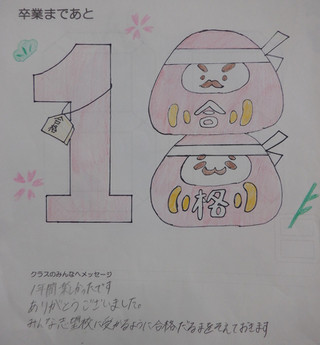 卒業まであと
1
合格
合
格
クラスのみんなへメッセージ
1年間楽しかったです
ありがとうございました。
みんな志望校に受かるように合格だるまをそえておきます